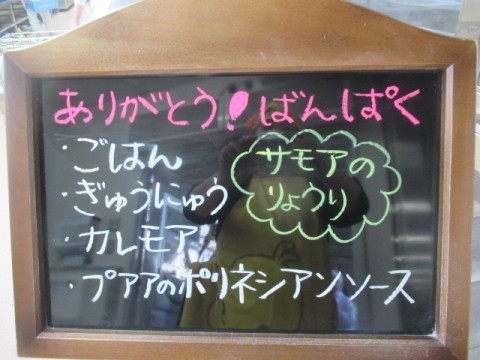 ありがとう!ばんぱく
・ごはん
・ぎゅうにゅう
・カレモア
・プアアのポリネシアンソース
サモアの
りょうり